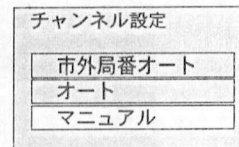 チャンネル設定
市外局番オート
オート
マニュアル